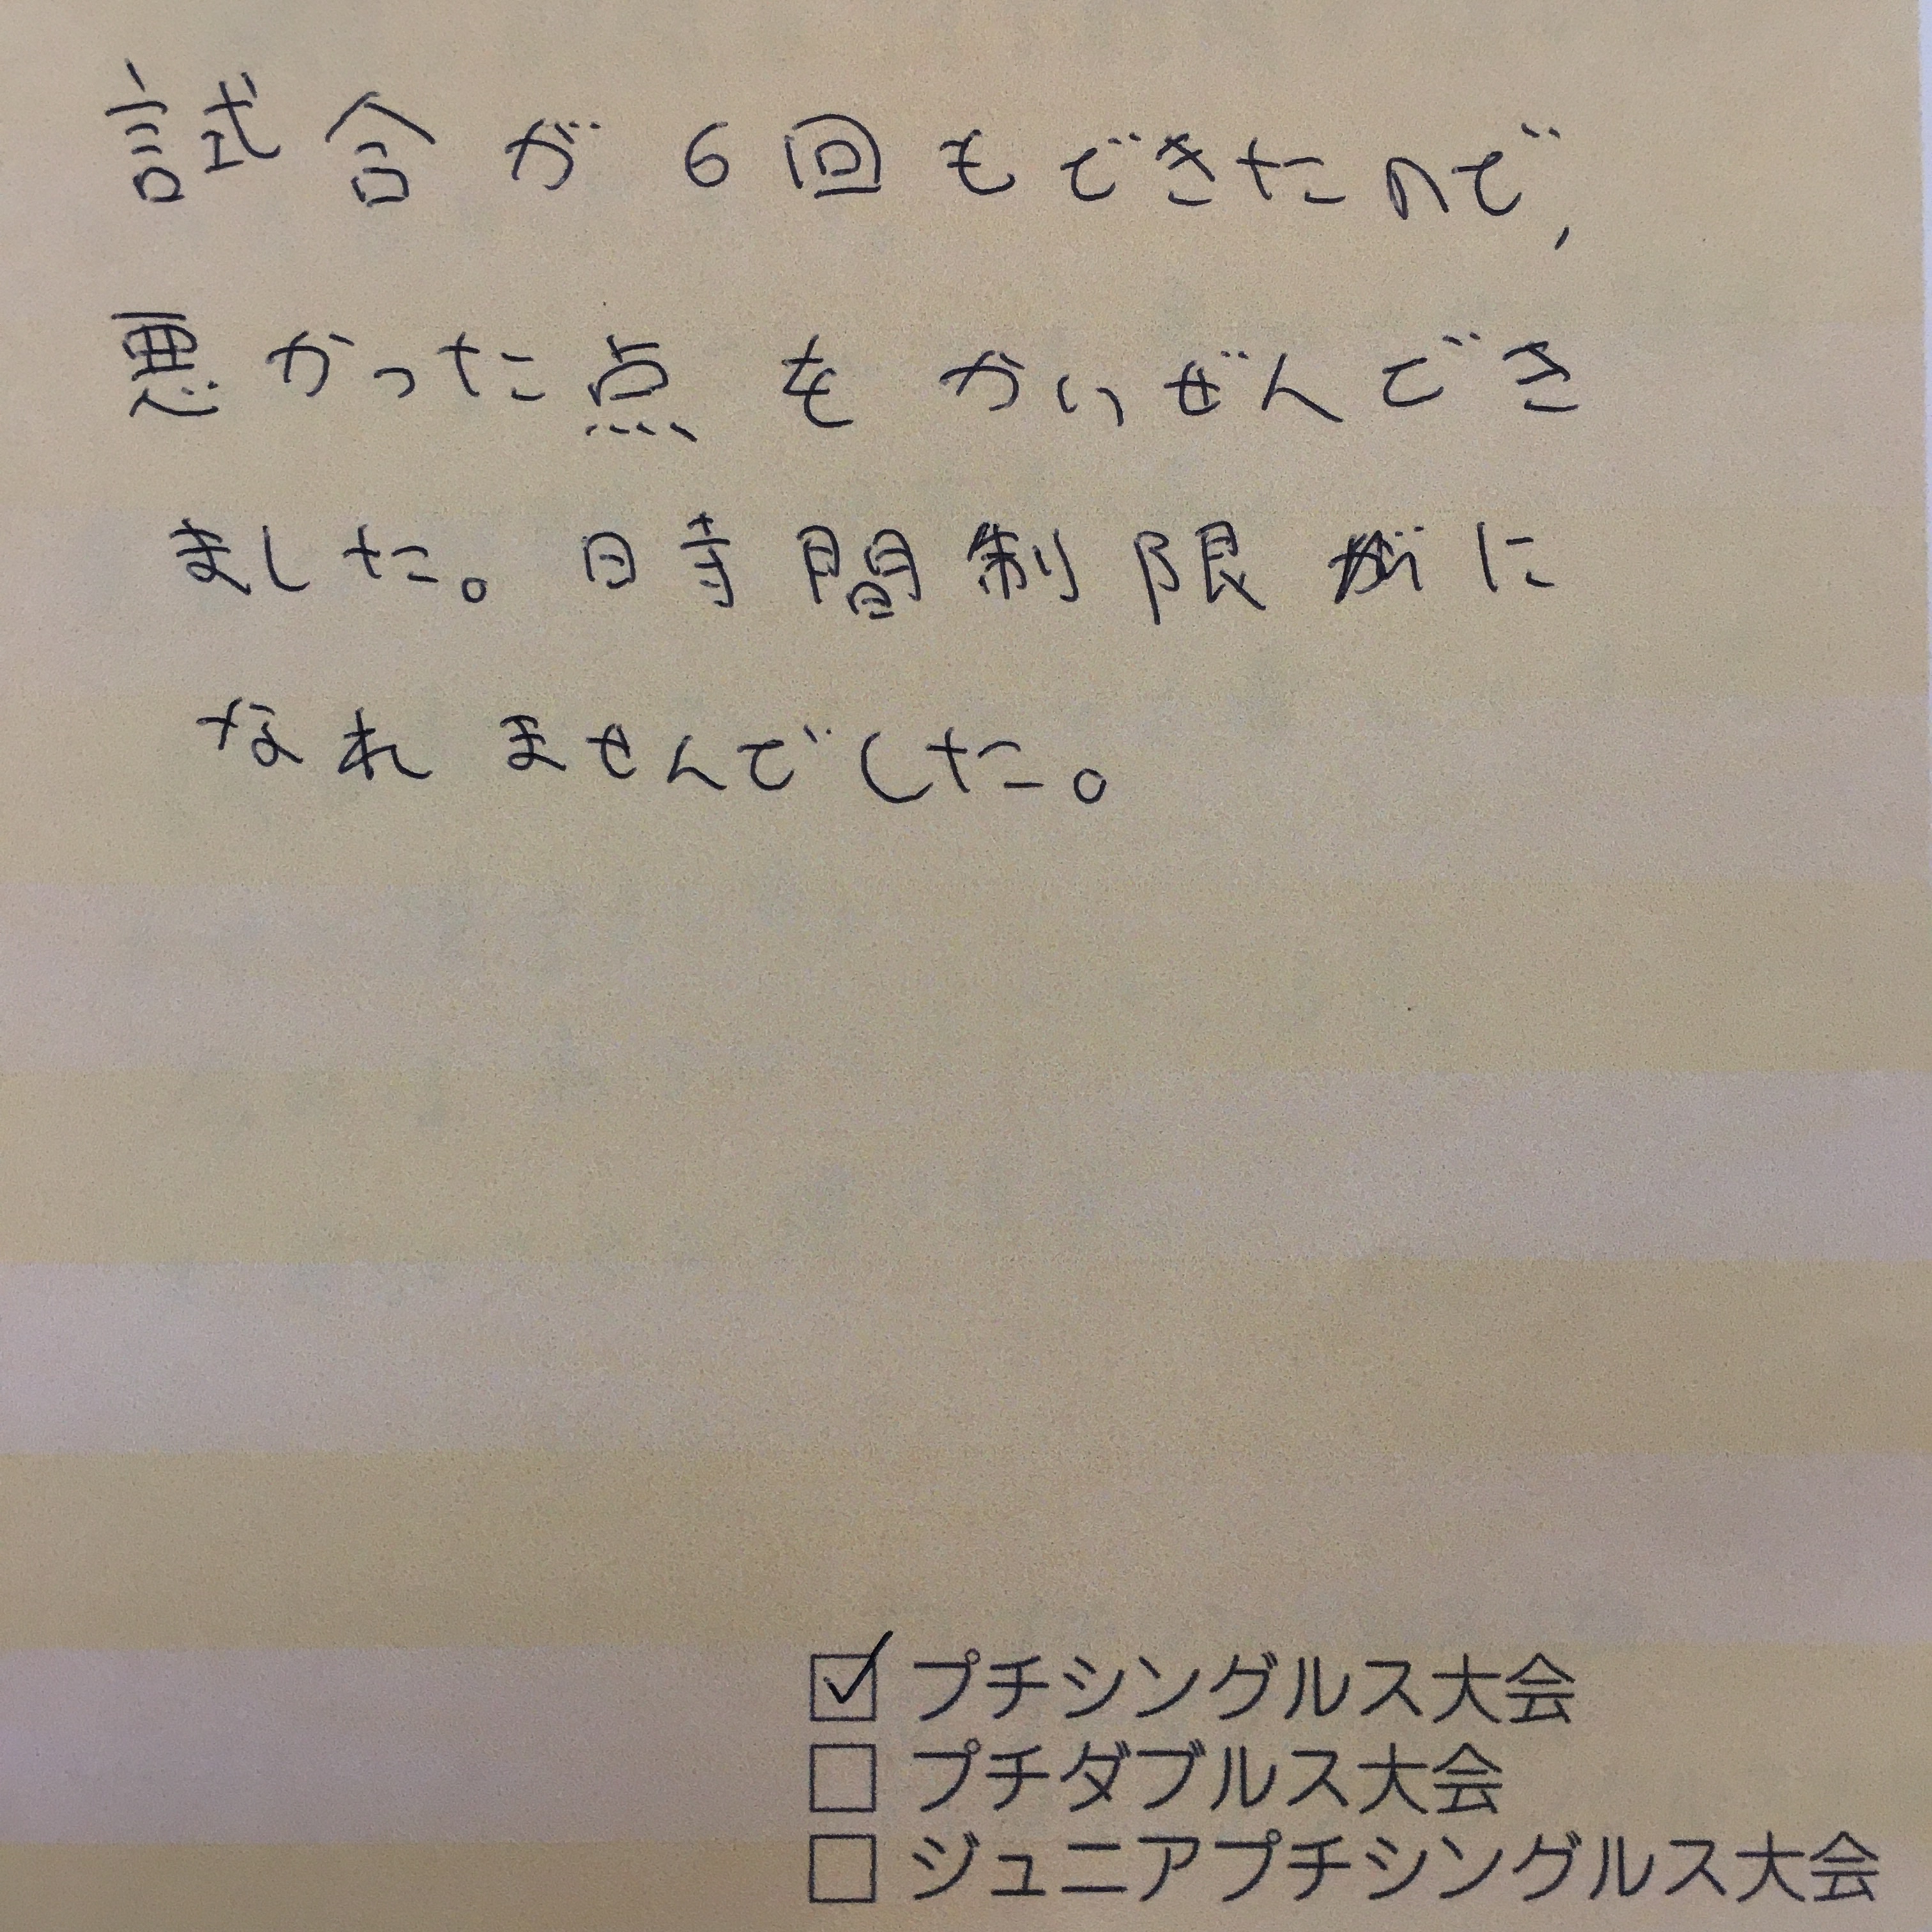 試合が6回もできたので,
悪かった点をかいぜんでき
ました。時間制限に
なれませんでした。
☑プチシングルス大会
□プチダブルス大会
□ジュニアプチシングルス大会